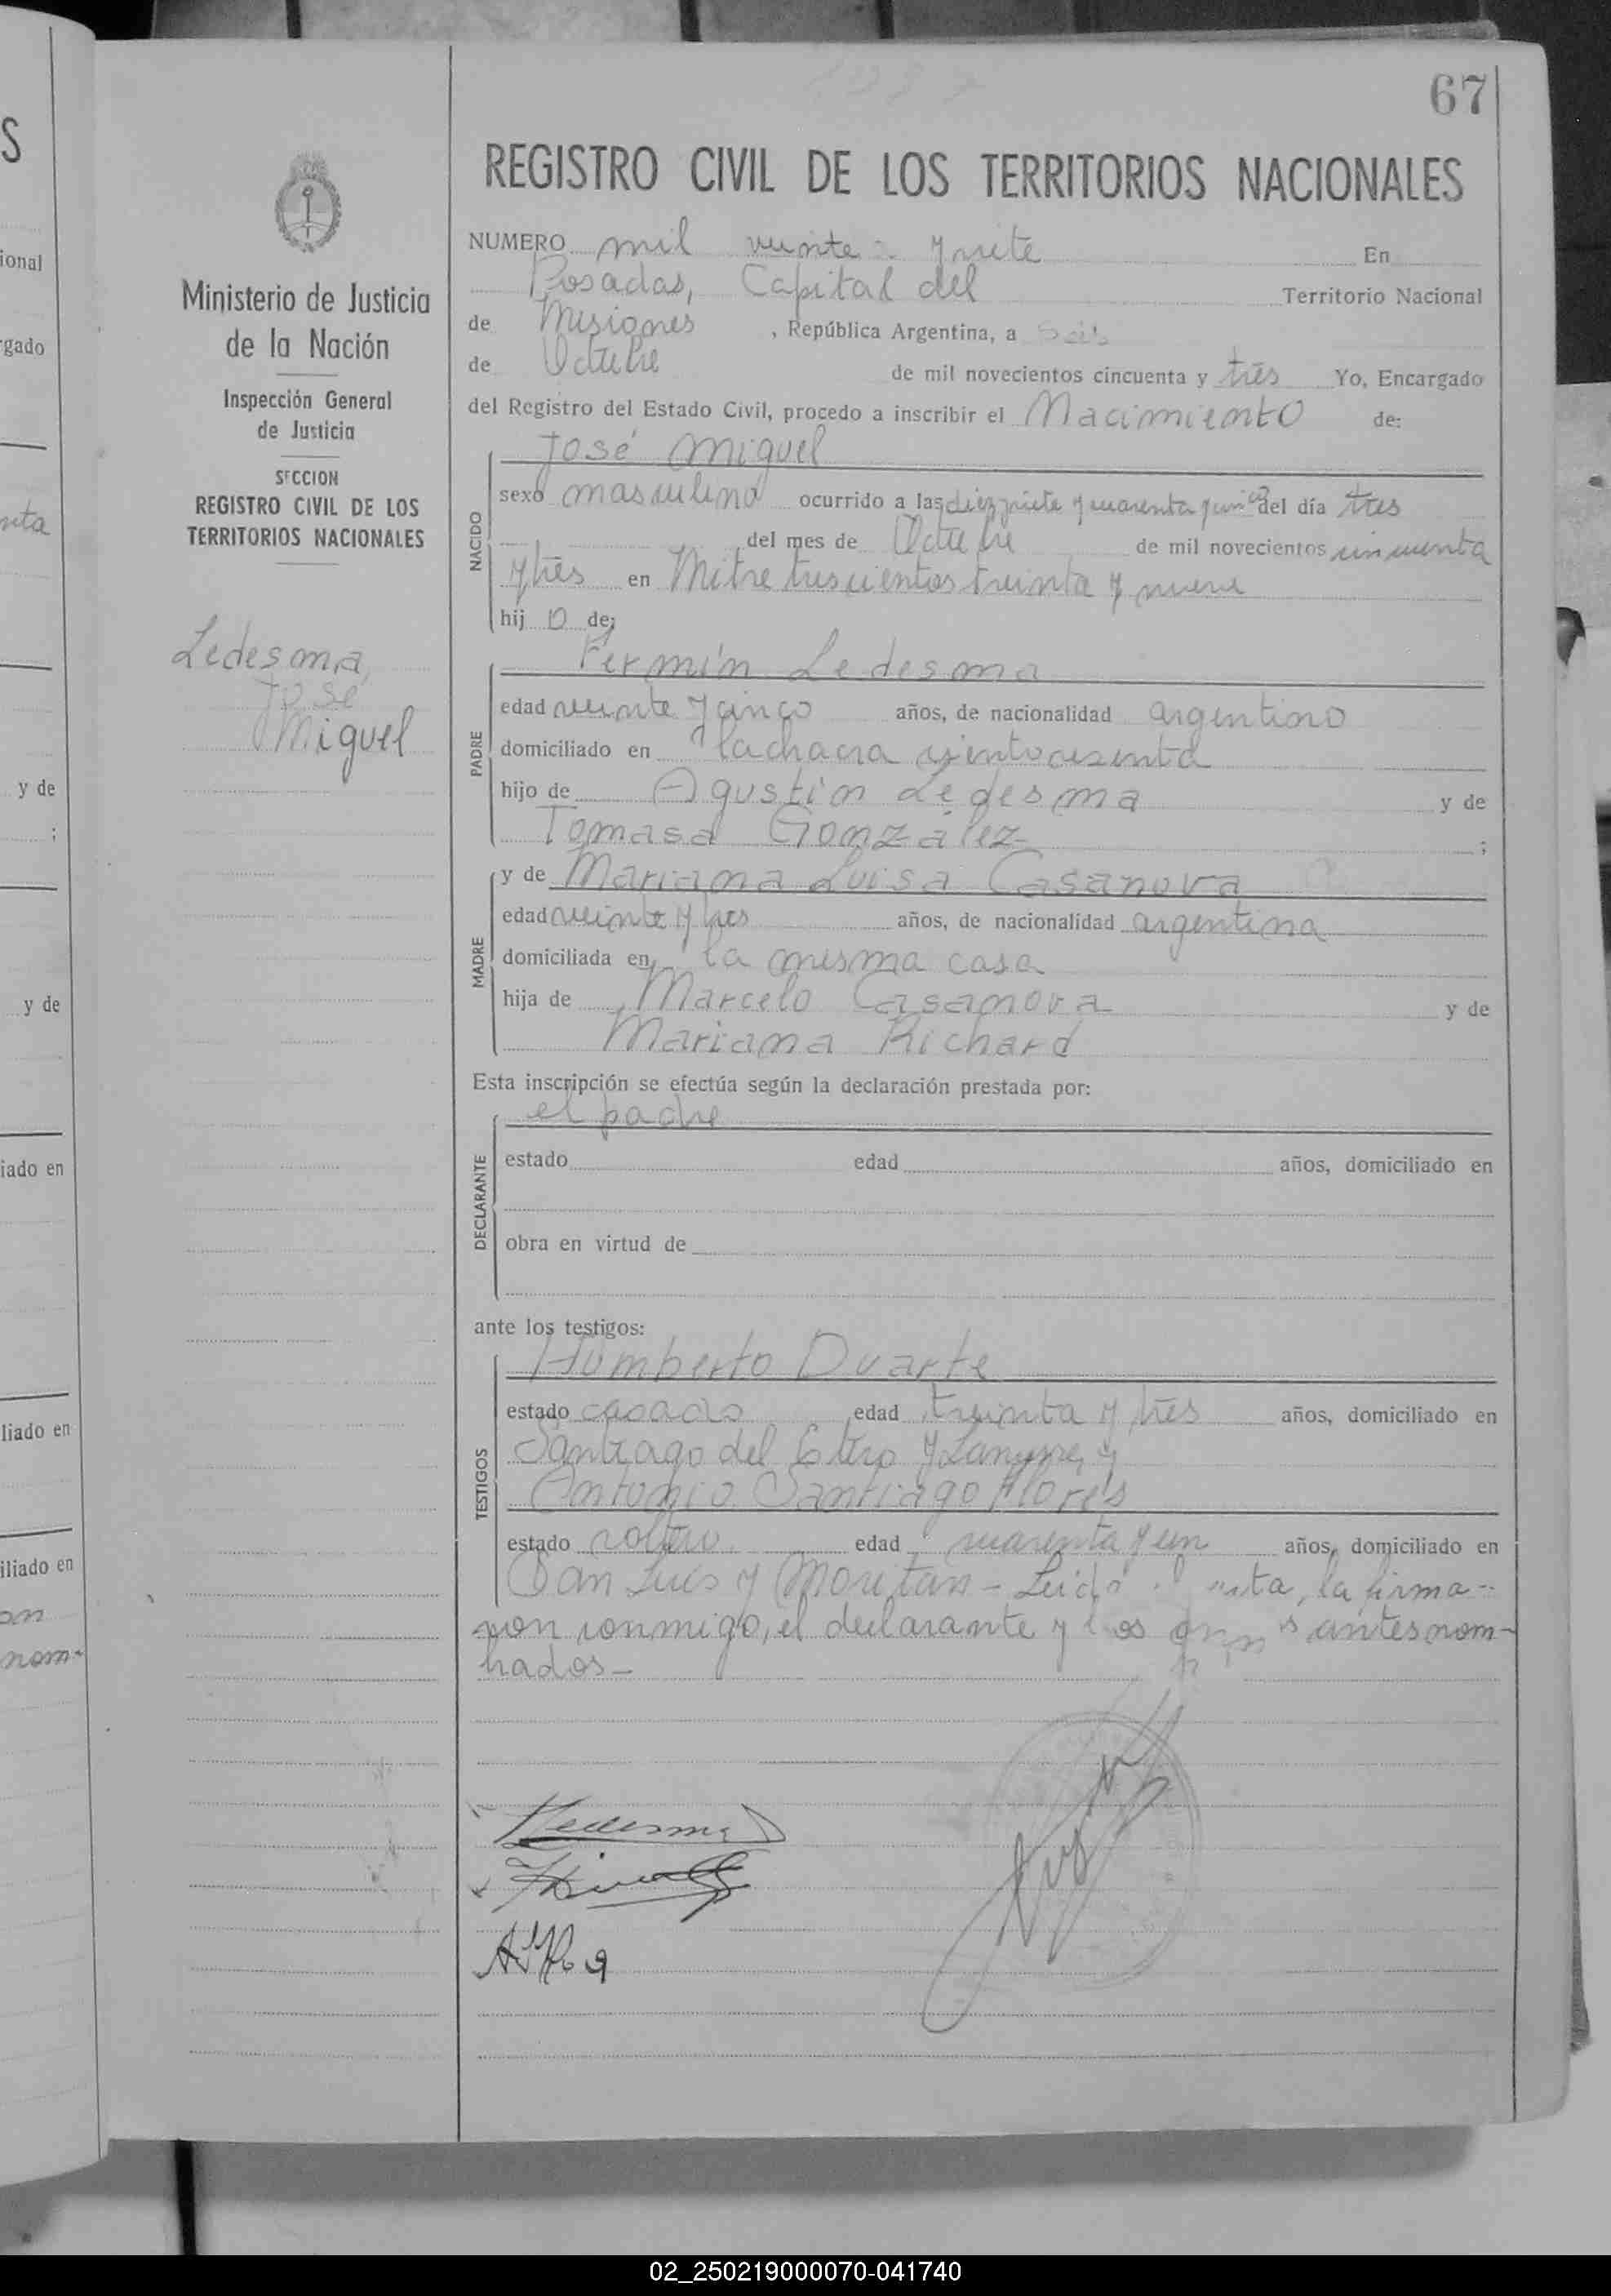 67
REGISTRO CIVIL DE LOS TERRITORIOS NACIONALES
Ministerio de Justicia
de la Nación
Inspección General
de Justicia
SECCION
REGISTRO CIVIL DE LOS
TERRITORIOS NACIONALES
Ledesma,
José
Miguel
NUMERO mil veinte y siete En
Posadas, Capital del Territorio Nacional
de Misiones, República Argentina, a seis
de Octubre de mil novecientos cincuenta y tres Yo, Encargado
del Registro del Estado Civil, procedo a inscribir el Nacimiento de:
José Miguel
NACIDO
sexo masculino ocurrido a las diez siete y cuarenta y cinco del día tres
del mes de Octubre de mil novecientos cincuenta
y tres en Mitre trescientos treinta y nueve
hijo de:
Fermín Ledesma
PADRE
edad veinte y cinco años, de nacionalidad argentino
domiciliado en la chacra ciento cesenta
hijo de Agustín Ledesma y de
Tomasa González ;
y de Mariana Luisa Casanova
MADRE
edad veinte y tres años, de nacionalidad argentina
domiciliada en la misma casa
hija de Marcelo Casanova y de
Mariana Richard
Esta inscripción se efectúa según la declaración prestada por:
el padre
DECLARANTE
estado edad años, domiciliado en
obra en virtud de
ante los testigos:
Humberto Duarte
TESTIGOS
estado casado edad treinta y tres años, domiciliado en
Santiago del Estero y
Antonio Santiago Flores
estado soltero edad cuarenta y un años, domiciliado en
San Luis y Moritan - Leída acta, la firma-
ron conmigo, el declarante y los antes nom-
brados-
Ledesma
S
ional
rgado
y de
;
y de
iado en
liado en
iliado en
nom-
02_250219000070-041740